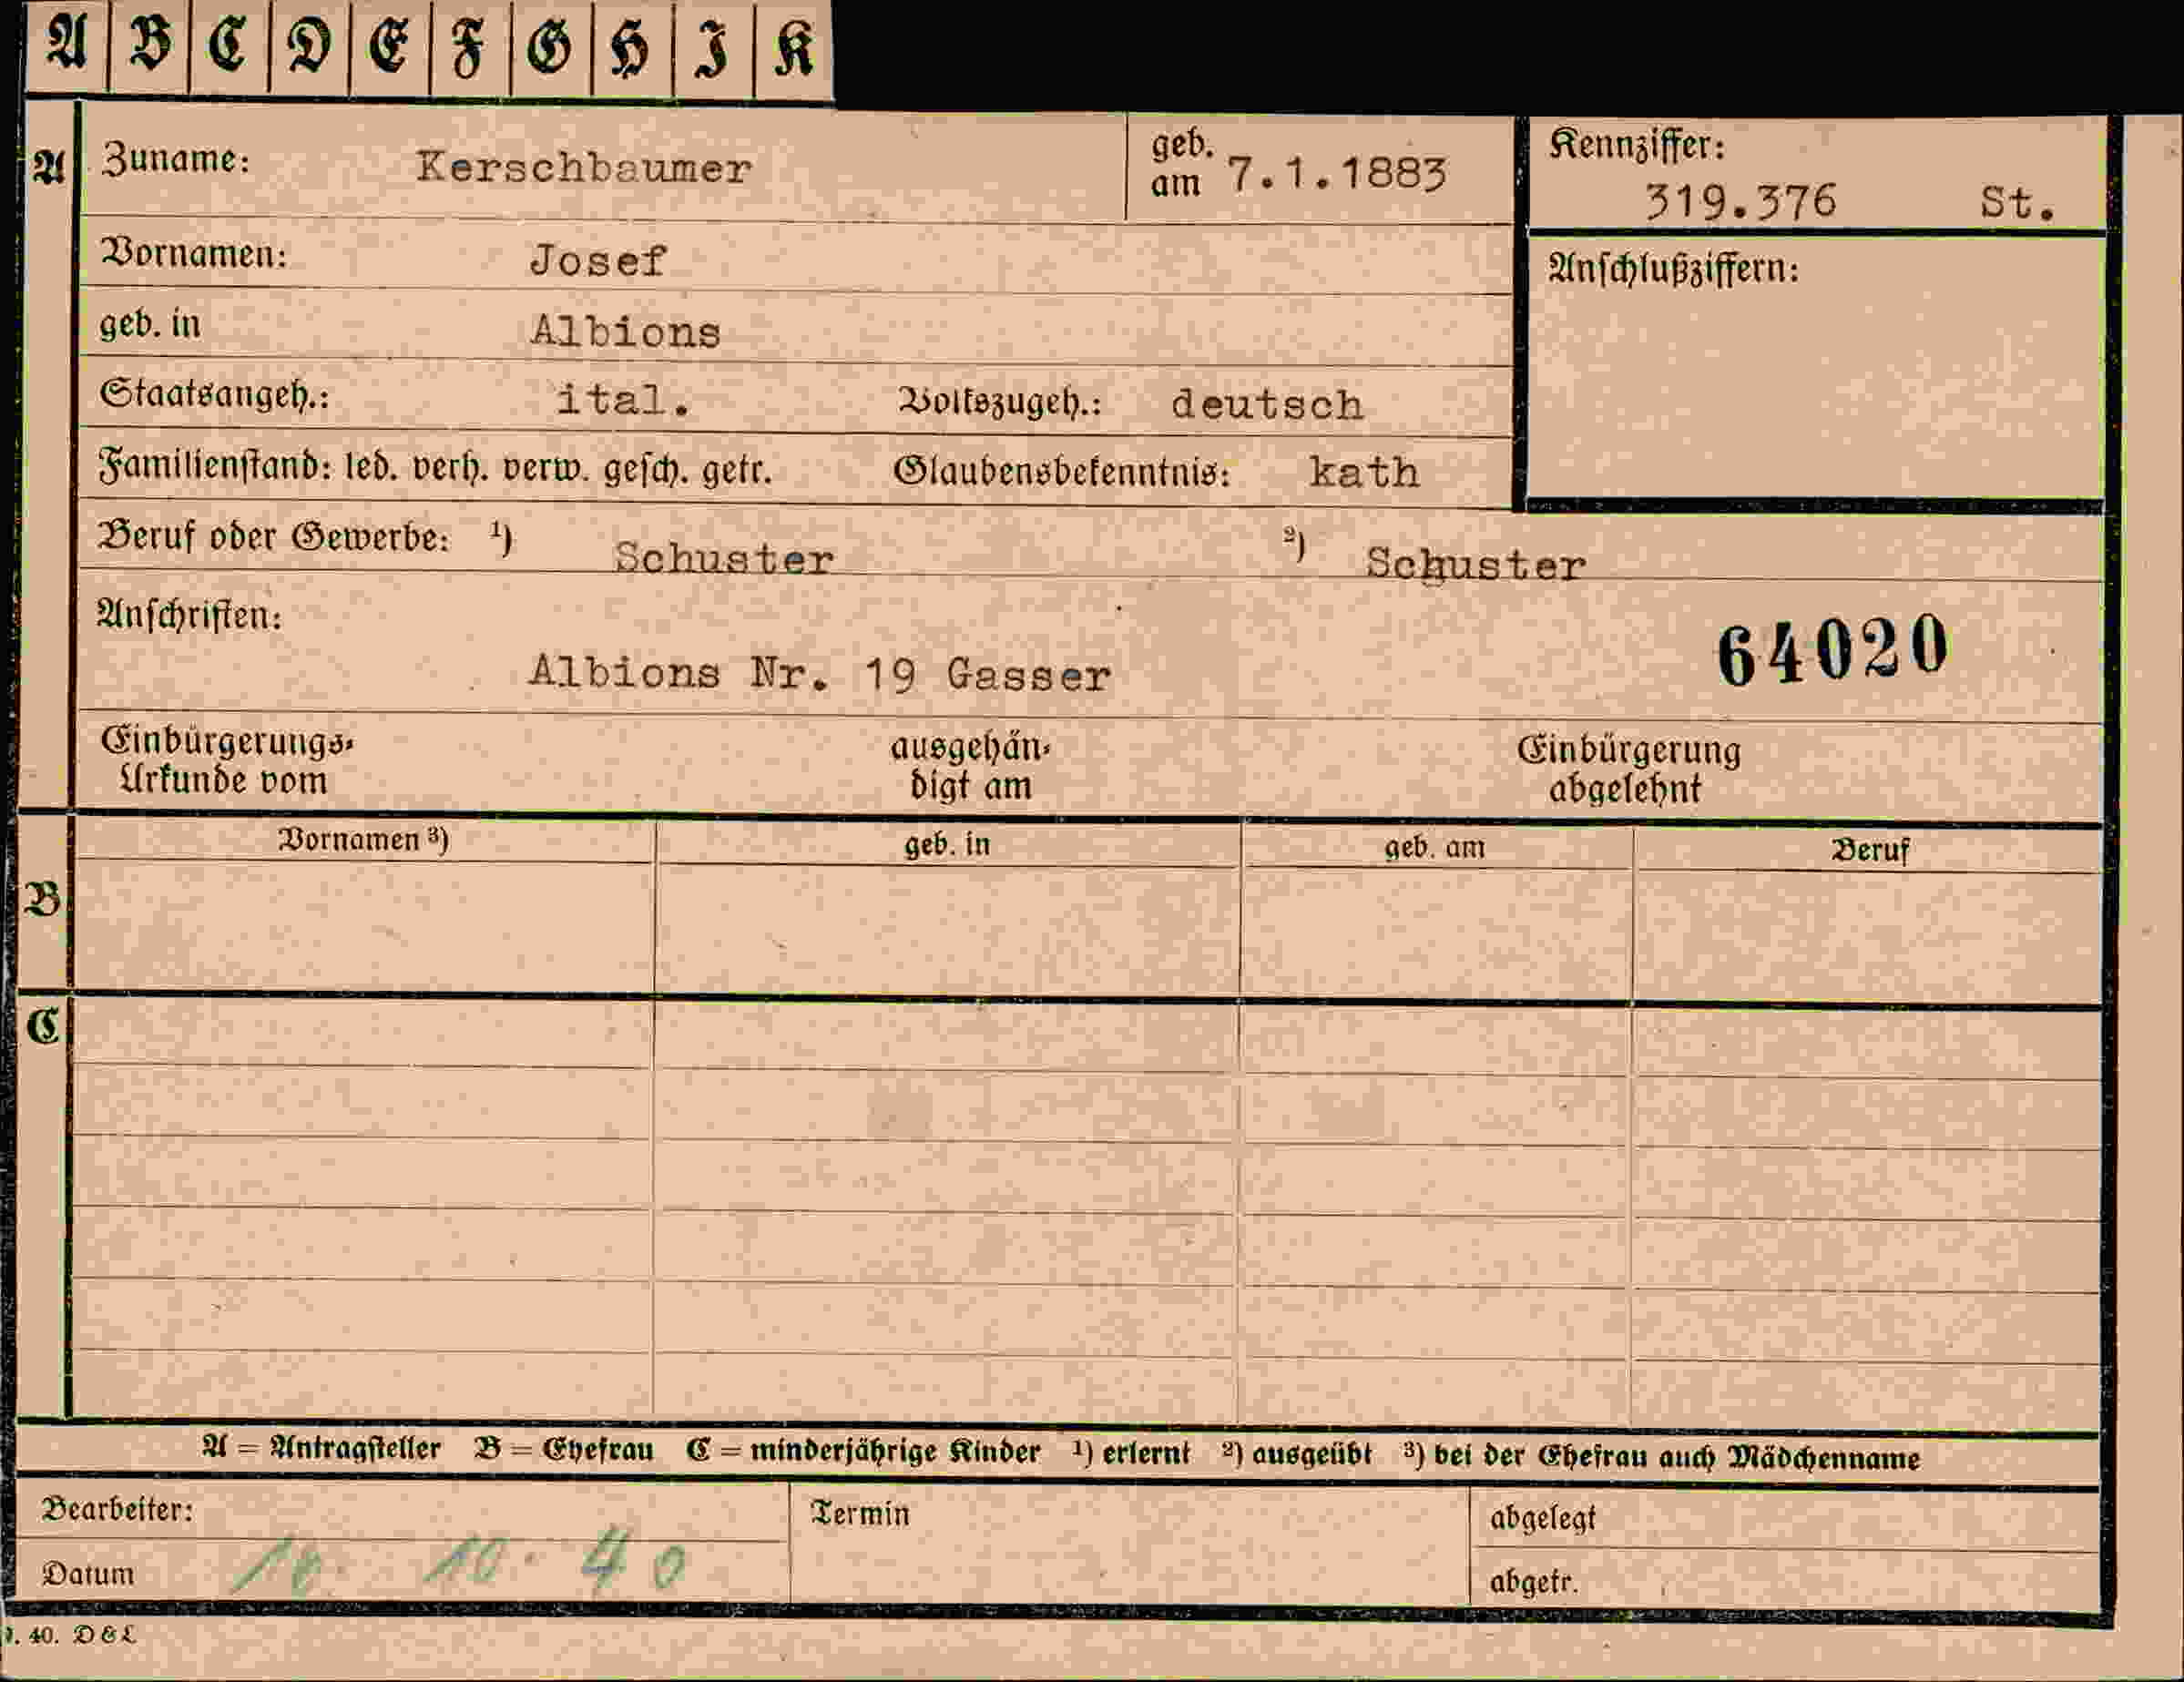 A B C D E F G H I K
A Zuname: Kerschbaumer geb. am 7.1.1883 Kennziffer: 319.376 St.
Vornamen: Josef Anschlußziffern:
geb. in Albions
Staatsangeh.: ital. Volkszugeh.: deutsch
Familienstand: led. verh. verw. gesch. getr. Glaubensbekenntnis: kath
Beruf oder Gewerbe: ¹) Schuster ²) Schuster
Anschriften:
Albions Nr. 19 Gasser 64020
Einbürgerungs- ausgehän- Einbürgerung
Urkunde vom digt am abgelehnt
Vornamen ³) geb. in geb. am Beruf
B
C
A = Antragsteller B = Ehefrau C = minderjährige Kinder ¹) erlernt ²) ausgeübt ³) bei der Ehefrau auch Mädchenname
Bearbeiter: Termin abgelegt
Datum 10. 10. 40 abgetr.
40. D & L